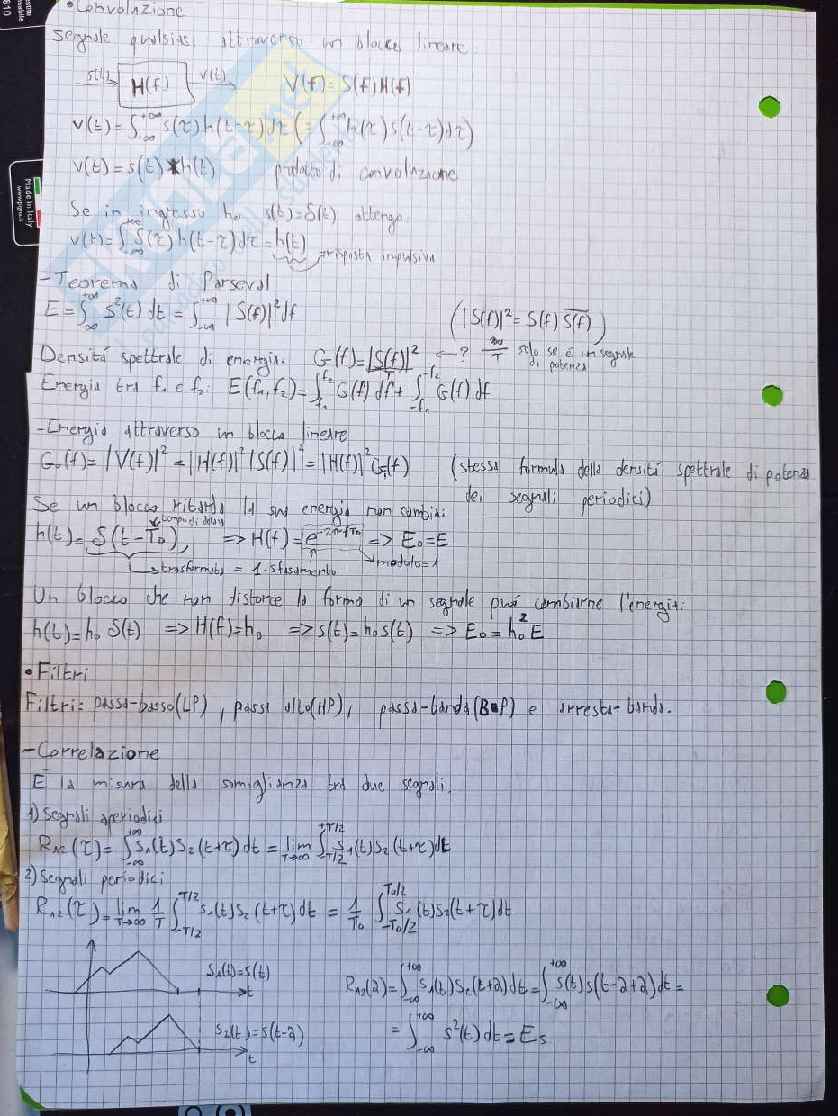 • Convoluzione
Segnale qualsiasi attraverso un blocco lineare.
s(t) H(f) v(t) V(f)=S(f)H(f)
v(t)=∫_{-∞}^{+∞} s(τ)h(t-τ)dτ (=∫_{-∞}^{+∞} h(τ)s(t-τ)dτ)
v(t)=s(t)*h(t) prodotto di convoluzione
Se in ingresso ho s(t)=δ(t) ottengo:
v(t)=∫_{-∞}^{+∞} δ(τ)h(t-τ)dτ=h(t) risposta impulsiva
-Teorema di Parseval
E=∫_{-∞}^{+∞} s²(t)dt=∫_{-∞}^{+∞} |S(f)|²df (|S(f)|²=S(f)S̅(̅f̅)̅)
Densità spettrale di energia. G(f)=|S(f)|² ←? solo se è un segnale di potenza
Energia tra f₁ e f₂: E(f₁,f₂)=∫_{f₁}^{f₂} G(f)df+∫_{-f₂}^{-f₁} G(f)df
-Energia attraverso un blocco lineare
G₀(f)=|V(f)|²=|H(f)|²|S(f)|²=|H(f)|²G(f) (stessa formula della densità spettrale di potenza
dei segnali periodici)
Se un blocco ritarda la sua energia non cambia:
h(t)=δ(t-T₀), tempo di delay => H(f)=e^{-j2πfT₀} => E₀=E
trasformata = 1·sfasamento modulo=1
Un blocco che non distorce la forma di un segnale può cambiarne l'energia:
h(t)=h₀δ(t) => H(f)=h₀ => s(t)=h₀s(t) => E₀=h₀²E
• Filtri
Filtri: passa-basso(LP), passa alto(HP), passa-banda(BP) e arresta-banda.
-Correlazione
È la misura della somiglianza tra due segnali.
1) Segnali aperiodici
R₁₂(τ)=∫_{-∞}^{+∞} s₁(t)s₂(t+τ)dt=lim_{T→∞} ∫_{-T/2}^{+T/2} s₁(t)s₂(t+τ)dt
2) Segnali periodici
R₁₂(τ)=lim_{T→∞} 1/T ∫_{-T/2}^{T/2} s₁(t)s₂(t+τ)dt=1/T₀ ∫_{-T₀/2}^{T₀/2} s₁(t)s₂(t+τ)dt
s₁(t)=s(t)
t
R₁₂(a)=∫_{-∞}^{+∞} s₁(t)s₂(t+a)dt=∫_{-∞}^{+∞} s(t)s(t-a+a)dt=
s₂(t)=s(t-a)
t
=∫_{-∞}^{+∞} s²(t)dt=Es
Made in Italy